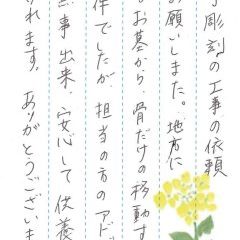 彫刻の工事の依頼
お願いしました。地方に
お墓から、骨だけの移動す
件でしたが担当の方のアド
無事出来、安心して供養
れます。ありがとうございま